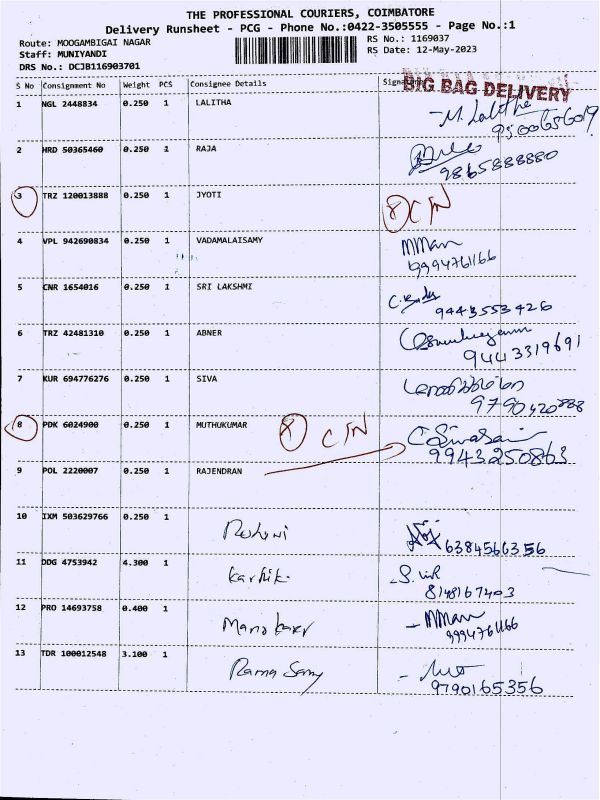 THE PROFESSIONAL COURIERS, COIMBATORE
Delivery Runsheet - PCG - Phone No.:0422-3505555 - Page No.:1
Route: MOOGAMBIGAI NAGAR
RS No.: 1169037
Staff: MUNIYANDI
RS Date: 12-May-2023
DRS No.: DCJB116903701
S No Consignment No Weight PCS Consignee Details
BIG BAG DELIVERY
1 NGL 2448834 0.250 1 LALITHA M. Lalitha
9500656019
2 HRD 50365460 0.250 1 RAJA
9865888880
3 TRZ 120013888 0.250 1 JYOTI
4 VPL 942690834 0.250 1 VADAMALAISAMY
9994761166
5 CNR 1654016 0.250 1 SRI LAKSHMI
9443553426
6 TRZ 42481310 0.250 1 ABNER
9443319691
7 KUR 694776276 0.250 1 SIVA
9790420888
8 PDK 6024900 0.250 1 MUTHUKUMAR
9943250863
9 POL 2220007 0.250 1 RAJENDRAN
10 IXM 503629766 0.250 1
6384566356
11 DDG 4753942 4.300 1 Karthik
8148167403
12 PRO 14693758 0.400 1
9994761166
13 TDR 100012548 3.100 1 Rama Samy
9790165356